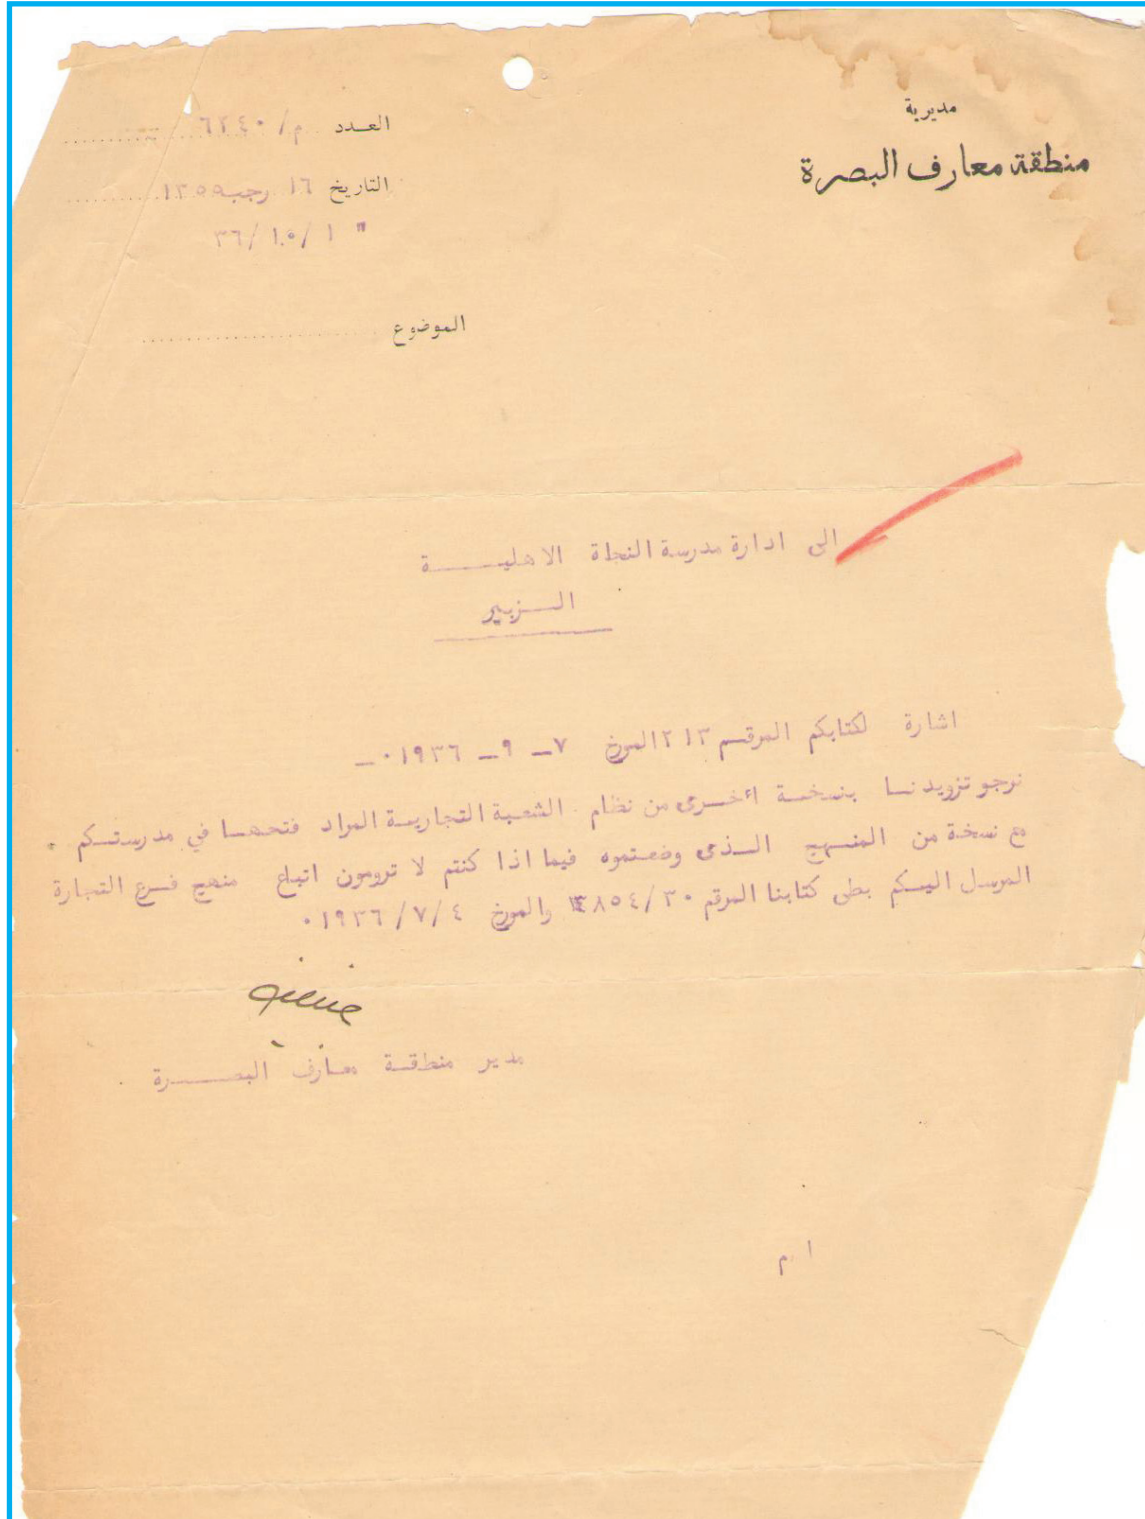 مديرية
منطقة معارف البصرة
العدد م/ ٦٢٤٠
التاريخ ١٦ رجب ١٣٥٥
" ١ /١٠/ ٣٦
الموضوع
الى ادارة مدرسة النجاة الاهليـــــة
الـــزبير
اشارة لكتابكم المرقم ٢١٣ المورخ ٧ــ ٩ــ ١٩٣٦٠ــ
نرجو تزويدنـا بنسخـة اخـرى من نظام الشعبة التجاريـة المراد فتحهـا في مدرستـكم .
مع نسخة من المنـهج الـذى وضعتموه فيما اذا كنتم لا ترومون اتباع منهج فـرع التجارة
المرسل اليـكم بطى كتابنا المرقم ٣٠/ ٣٨٥٤ والمورخ ٤/ ٧/ ١٩٣٦٠
مدير منطقـة معـارف البصـــرة .
ا م